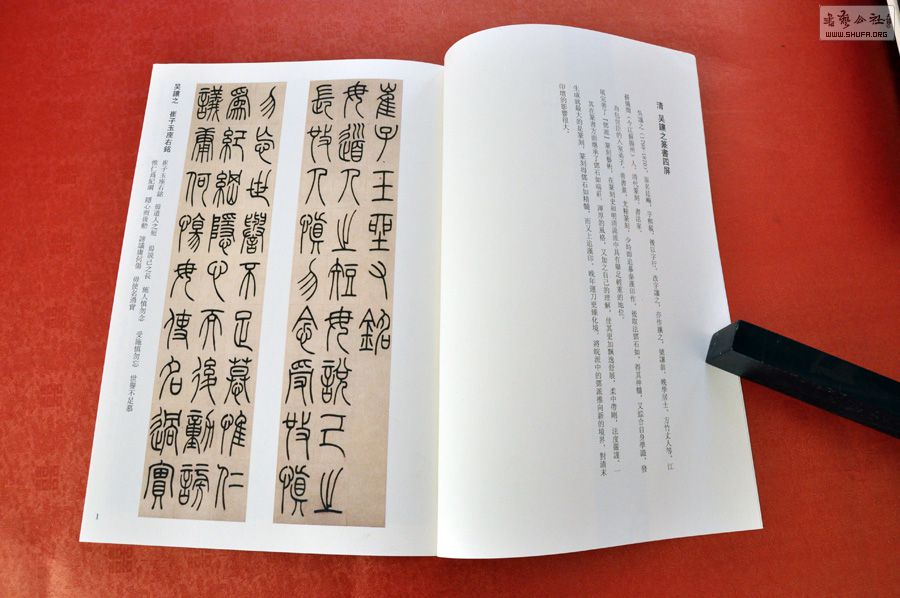 清 吴讓之篆書四屏
吴讓之(1799-1870),原名廷颺,字熙載,後以字行,改字讓之,亦作攘之,號讓翁、晚學居士、方竹丈人等,江
蘇儀徵(今江蘇揚州)人。清代篆刻、書法家。
為包世臣的入室弟子,善書畫,尤精篆刻。少時即追摹秦漢印作,後取法鄧石如,得其神髓,又綜合自身學識,發
展完善了『鄧派』篆刻藝術,在篆刻史和明清流派中具有舉足輕重的地位。
其在篆書方面繼承了鄧石如端莊、渾厚的風格,又加之自己的理解,使其更加飄逸舒展,柔中帶剛,法度嚴謹。一
生成就最大的是篆刻,篆刻得鄧石如精髓,而又上追漢印,晚年運刀更臻化境,將皖派中的鄧派推向新的境界,對清末
印壇的影響很大。
崔子玉坐又銘
毋道人之短毋説己之
長施人慎勿念受施慎
勿忘世譽不足慕惟仁
為紀綱隱心而後動謗
議庸何傷毋使名過實
吴讓之 崔子玉座右銘
崔子玉座右銘 毋道人之短 毋説己之長 施人慎勿念 受施慎勿忘 世譽不足慕
惟仁爲紀綱 隱心而後動 謗議庸何傷 毋使名過實
1
書藝公社
WWW.SHUFA.ORG